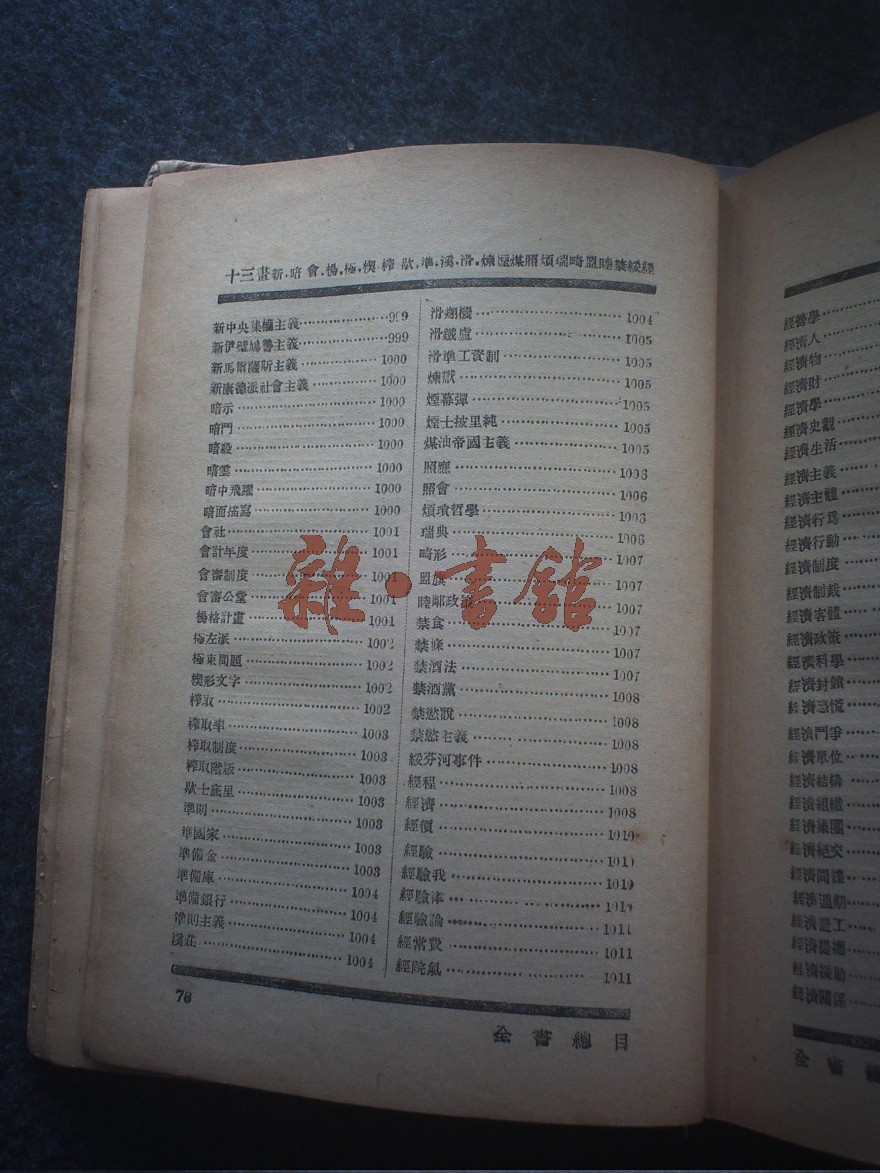 十三畫 新.暗.會.楊.極.楔.榨.歇.準.溪.滑.煉.煙.煤.照.煩.瑞.畸.盟.睦.禁.綏.經
新中央集權主義 999
新伊壁鳩魯主義 999
新馬爾薩斯主義 1000
新康德派社會主義 1000
暗示 1000
暗鬥 1000
暗殺 1000
暗雲 1000
暗中飛躍 1000
暗面描寫 1000
會社 1001
會計年度 1001
會審制度 1001
會審公堂 1001
楊格計畫 1001
極左派 1002
極東問題 1002
楔形文字 1002
榨取 1002
榨取率 1003
榨取制度 1003
榨取階級 1003
歇士底里 1003
準則 1003
準國家 1003
準備金 1003
準備庫 1004
準備銀行 1004
準則主義 1004
溪莊 1004
滑翔機 1004
滑鐵盧 1005
滑準工資制 1005
煉獄 1005
煙幕彈 1005
煙士披里純 1005
煤油帝國主義 1005
照應 1006
照會 1006
煩瑣哲學 1006
瑞典 1006
畸形 1007
盟旗 1007
睦鄰政策 1007
禁食 1007
禁條 1007
禁酒法 1007
禁酒黨 1008
禁慾說 1008
禁慾主義 1008
綏芬河事件 1008
經程 1008
經濟 1008
經價 1010
經驗 1010
經驗我 1010
經驗律
經驗論 1011
經常費 1011
經院氣 1011
78
全書總目
雜·書館
經營學
經濟人
經濟物
經濟財
經濟學
經濟史觀
經濟生活
經濟主義
經濟主體
經濟行為
經濟行動
經濟制度
經濟制裁
經濟客體
經濟政策
經濟科學
經濟封鎖
經濟恐慌
經濟鬥爭
經濟單位
經濟結構
經濟組織
經濟集團
經濟絕交
經濟間諜
經濟週期
經濟罷工
經濟提攜
經濟援助
經濟關係
全書